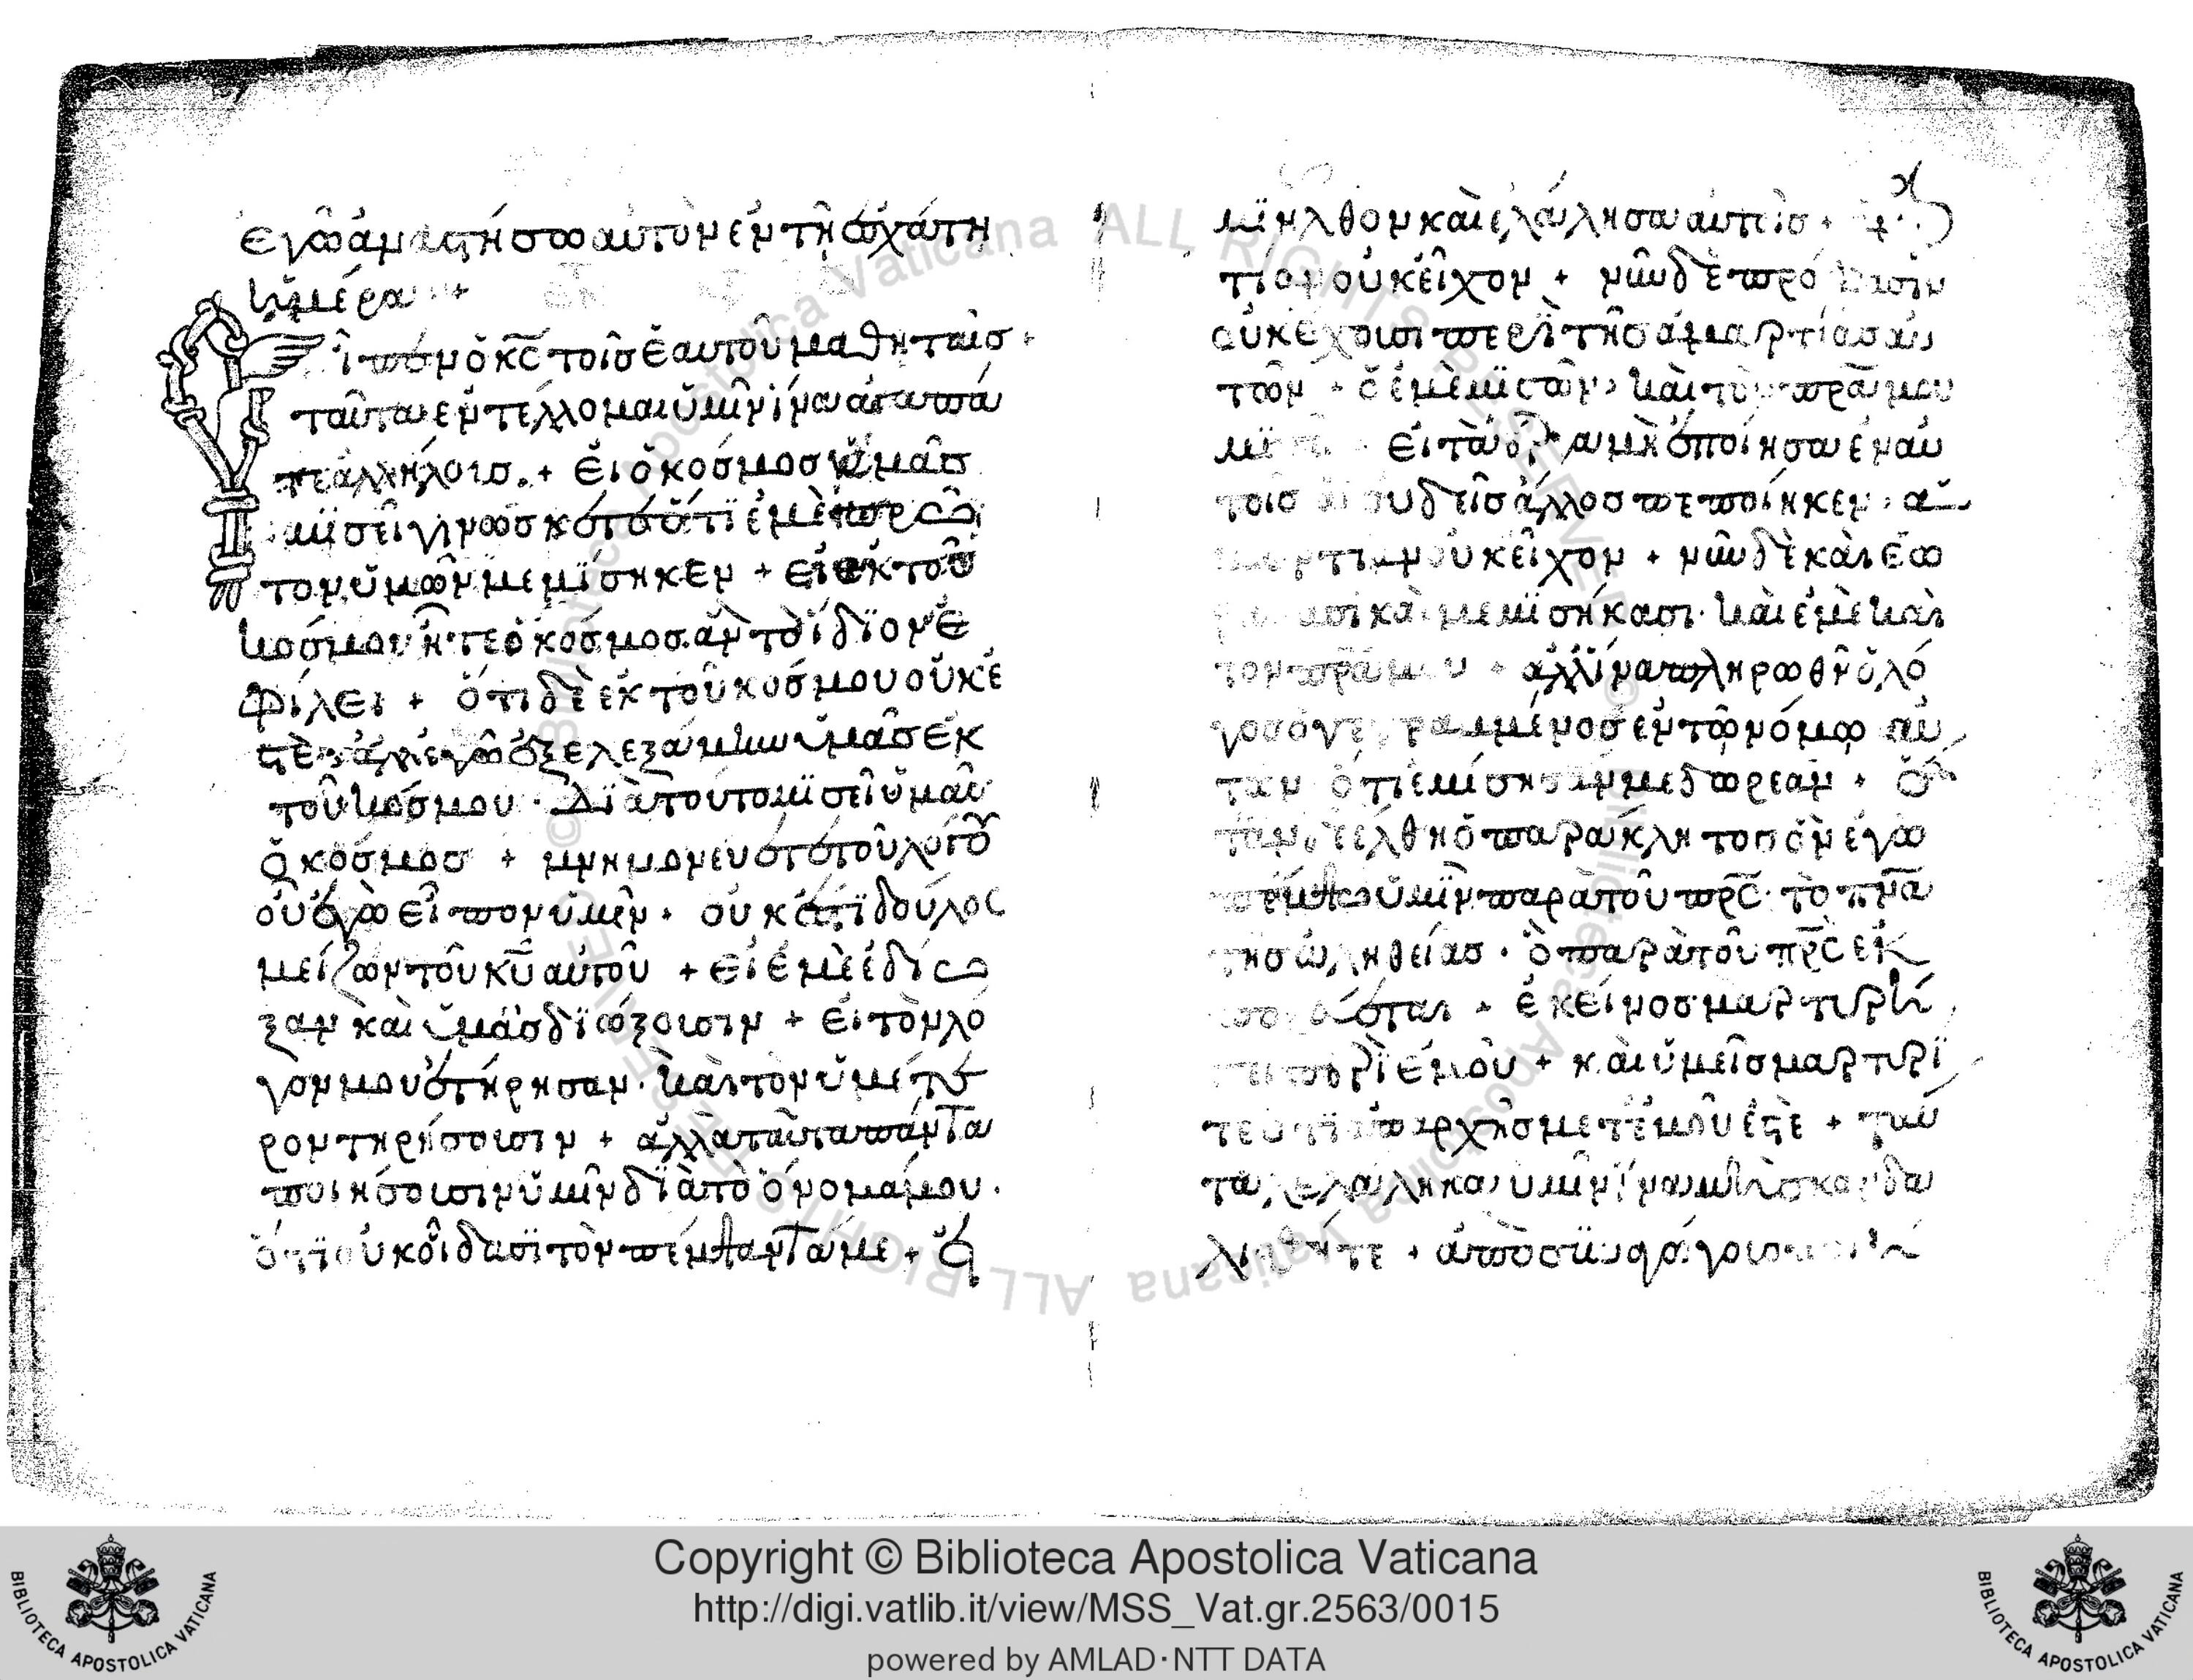 ἐγὼ ἀναστήσω αὐτὸν ἐν τῆ ἐσχάτη
ἡμέρα +
Εἶπεν ὁ κ̅ς̅ τοῖς ἑαυτοῦ μαθηταῖς +
ταῦτα ἐντέλλομαι ὑμῖν ἵνα ἀγαπᾶ
τε ἀλλήλοις + εἰ ὁ κόσμος ὑμᾶς
μϊσεῖ γινώσκετε ὅτϊ ἐμὲ πρῶ
τον ὑμῶν μεμΐσηκεν + εἰ ἐκ τοῦ
κόσμου ἦτε ὁ κόσμος ἂν τὸ ἴδϊον ἐ
φίλει + ὅτι δὲ ἐκ τοῦ κόσμου οὐκ ἐ
στὲ ἀλλ' ἐγὼ ἐξελεξάμην ὑμᾶς ἐκ
τοῦ κόσμου · Δϊὰ τοῦτο μϊσεῖ ὑμᾶς
ὁ κόσμος + μνημονεύετε τοῦ λόγου
οὗ ἐγὼ εἶπον ὑμῖν · οὐκ ἔστϊ δοῦλος
μείζων τοῦ κ̅υ̅ αὐτοῦ + εἰ ἐμὲ ἐδίω
ξαν καὶ ὑμᾶς δϊώξουσιν + εἰ τὸν λό
γον μου ἐτήρησαν · καὶ τὸν ὑμέτε
ρον τηρήσουσιν + ἀλλὰ ταῦτα πάντα
ποιήσουσιν ὑμῖν δϊὰ τὸ ὄνομά μου ·
ὅτϊ οὐκ οἴδασϊ τὸν πέμψαντά με + εἰ
μῒ ἦλθον καὶ ἐλάλησα αὐτοῖς +
τίαν οὐκ εἶχον + νῦν δὲ πρόφασιν
οὐκ ἔχουσι περὶ τῆς ἁμαρτίας αὐ
τῶν + ὁ ἐμὲ μϊσῶν · καὶ τὸν π̅ρ̅α̅ μου
μϊσεῖ · εἰ τὰ ἔργα μὴ ἐποίησα ἐν αὐ
τοῖς ἃ οὐδεὶς ἄλλος πεποίηκεν · ἁ
μαρτίαν οὐκ εἶχον + νῦν δὲ καὶ ἑω
ράκασι καὶ μεμϊσήκασι · καὶ ἐμὲ καὶ
τὸν π̅ρ̅α̅ μου + ἀλλ' ἵνα πληρωθῆ ὁ λό
γος ὁ γεγραμμένος ἐν τῶ νόμω αὐ
τῶν ὅτι ἐμίσησάν με δωρεάν + ὅ
ταν ἔλθη ὁ παράκλητος ὃν ἐγὼ
πέμψω ὑμῖν παρὰ τοῦ π̅ρ̅ς̅ · τὸ π̅ν̅α̅
τῆς ἀληθείας · ὃ παρὰ τοῦ π̅ρ̅ς̅ ἐκ
πορεύεται + ἐκεῖνος μαρτυρή
σει περὶ ἐμοῦ + καὶ ὑμεῖς μαρτυρεῖ
τε ὅτϊ ἀπ' ἀρχῆς μετ' ἐμοῦ ἐστὲ + ταῦ
τα λελάληκα ὑμῖν ἵνα μὴ σκανδα
λισθῆτε + ἀποσυναγώγους
Copyright © Biblioteca Apostolica Vaticana
http://digi.vatlib.it/view/MSS_Vat.gr.2563/0015
powered by AMLAD·NTT DATA